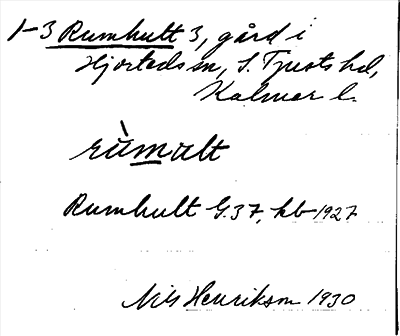 1-3 Rumhult 3, gård i
Hjorteds sn, S. Tjusts hd,
Kalmar l.
rùmalt
Rumhult G.37, kb 1927
Nils Henrikson 1930